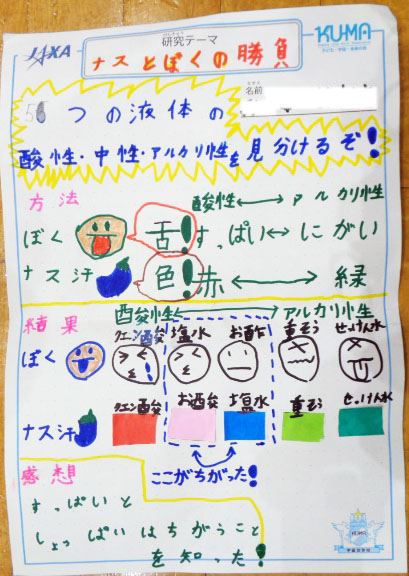 JAXA
研究テーマ
KU-MA
ナスとぼくの勝負
名前
つの液体の
酸性・中性・アルカリ性を見分けるぞ!
方法 酸性↔アルカリ性
ぼく 舌! すっぱい↔にがい
ナス汗 色! 赤↔緑
結果 酸性↔アルカリ性
クエン酸 塩水 お酢 重そう せっけん水
ぼく
クエン酸 お酢 塩水 重そう せっけん水
ナス汗
ここがちがった!
感想
すっぱいと
しょっぱいはちがうこと
を知った!